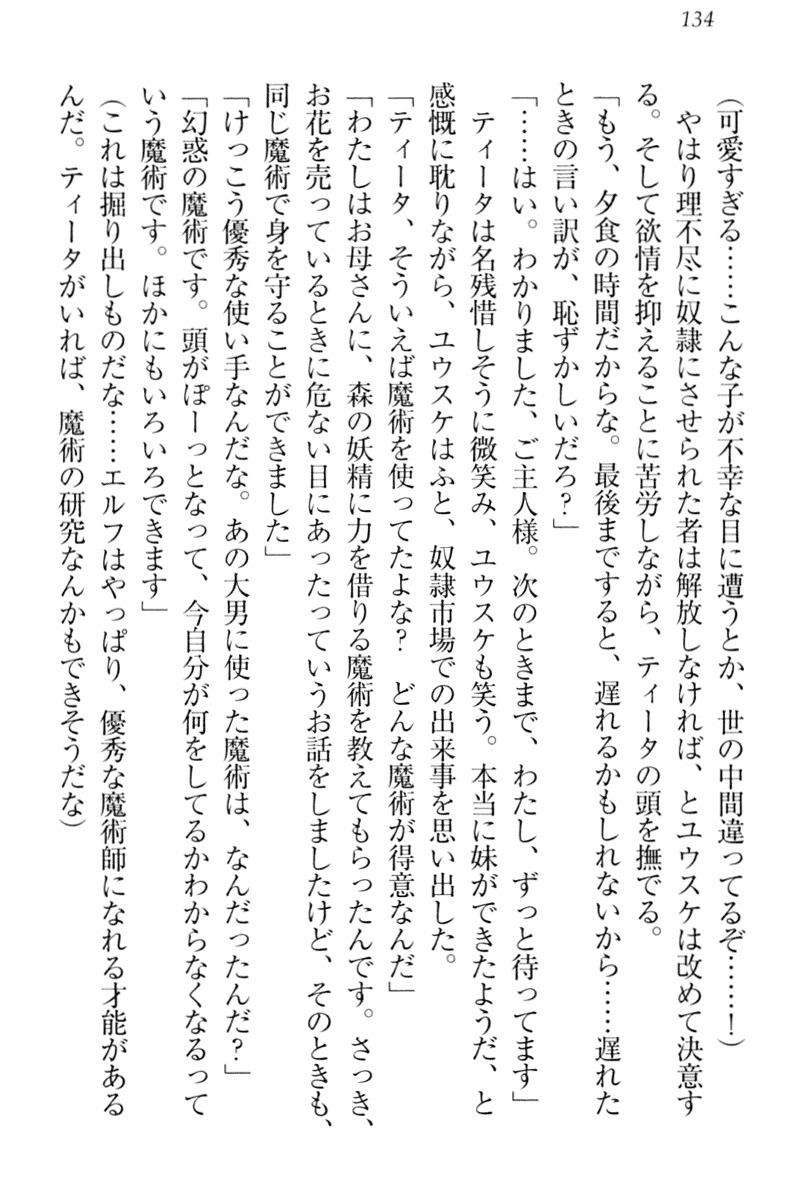 134
(可愛すぎる……こんな子が不幸な目に遭うとか、世の中間違ってるぞ……！)
　やはり理不尽に奴隷にさせられた者は解放しなければ、とユウスケは改めて決意す
る。そして欲情を抑えることに苦労しながら、ティータの頭を撫でる。
「もう、夕食の時間だからな。最後まですると、遅れるかもしれないから……遅れた
ときの言い訳が、恥ずかしいだろ？」
「……はい。わかりました、ご主人様。次のときまで、わたし、ずっと待ってます」
　ティータは名残惜しそうに微笑み、ユウスケも笑う。本当に妹ができたようだ、と
感慨に耽りながら、ユウスケはふと、奴隷市場での出来事を思い出した。
「ティータ、そういえば魔術を使ってたよな？　どんな魔術が得意なんだ」
「わたしはお母さんに、森の妖精に力を借りる魔術を教えてもらったんです。さっき、
お花を売っているときに危ない目にあったっていうお話をしましたけど、そのときも、
同じ魔術で身を守ることができました」
「けっこう優秀な使い手なんだな。あの大男に使った魔術は、なんだったんだ？」
「幻惑の魔術です。頭がぽーっとなって、今自分が何をしてるかわからなくなるって
いう魔術です。ほかにもいろいろできます」
(これは掘り出しものだな……エルフはやっぱり、優秀な魔術師になれる才能がある
んだ。ティータがいれば、魔術の研究なんかもできそうだな)